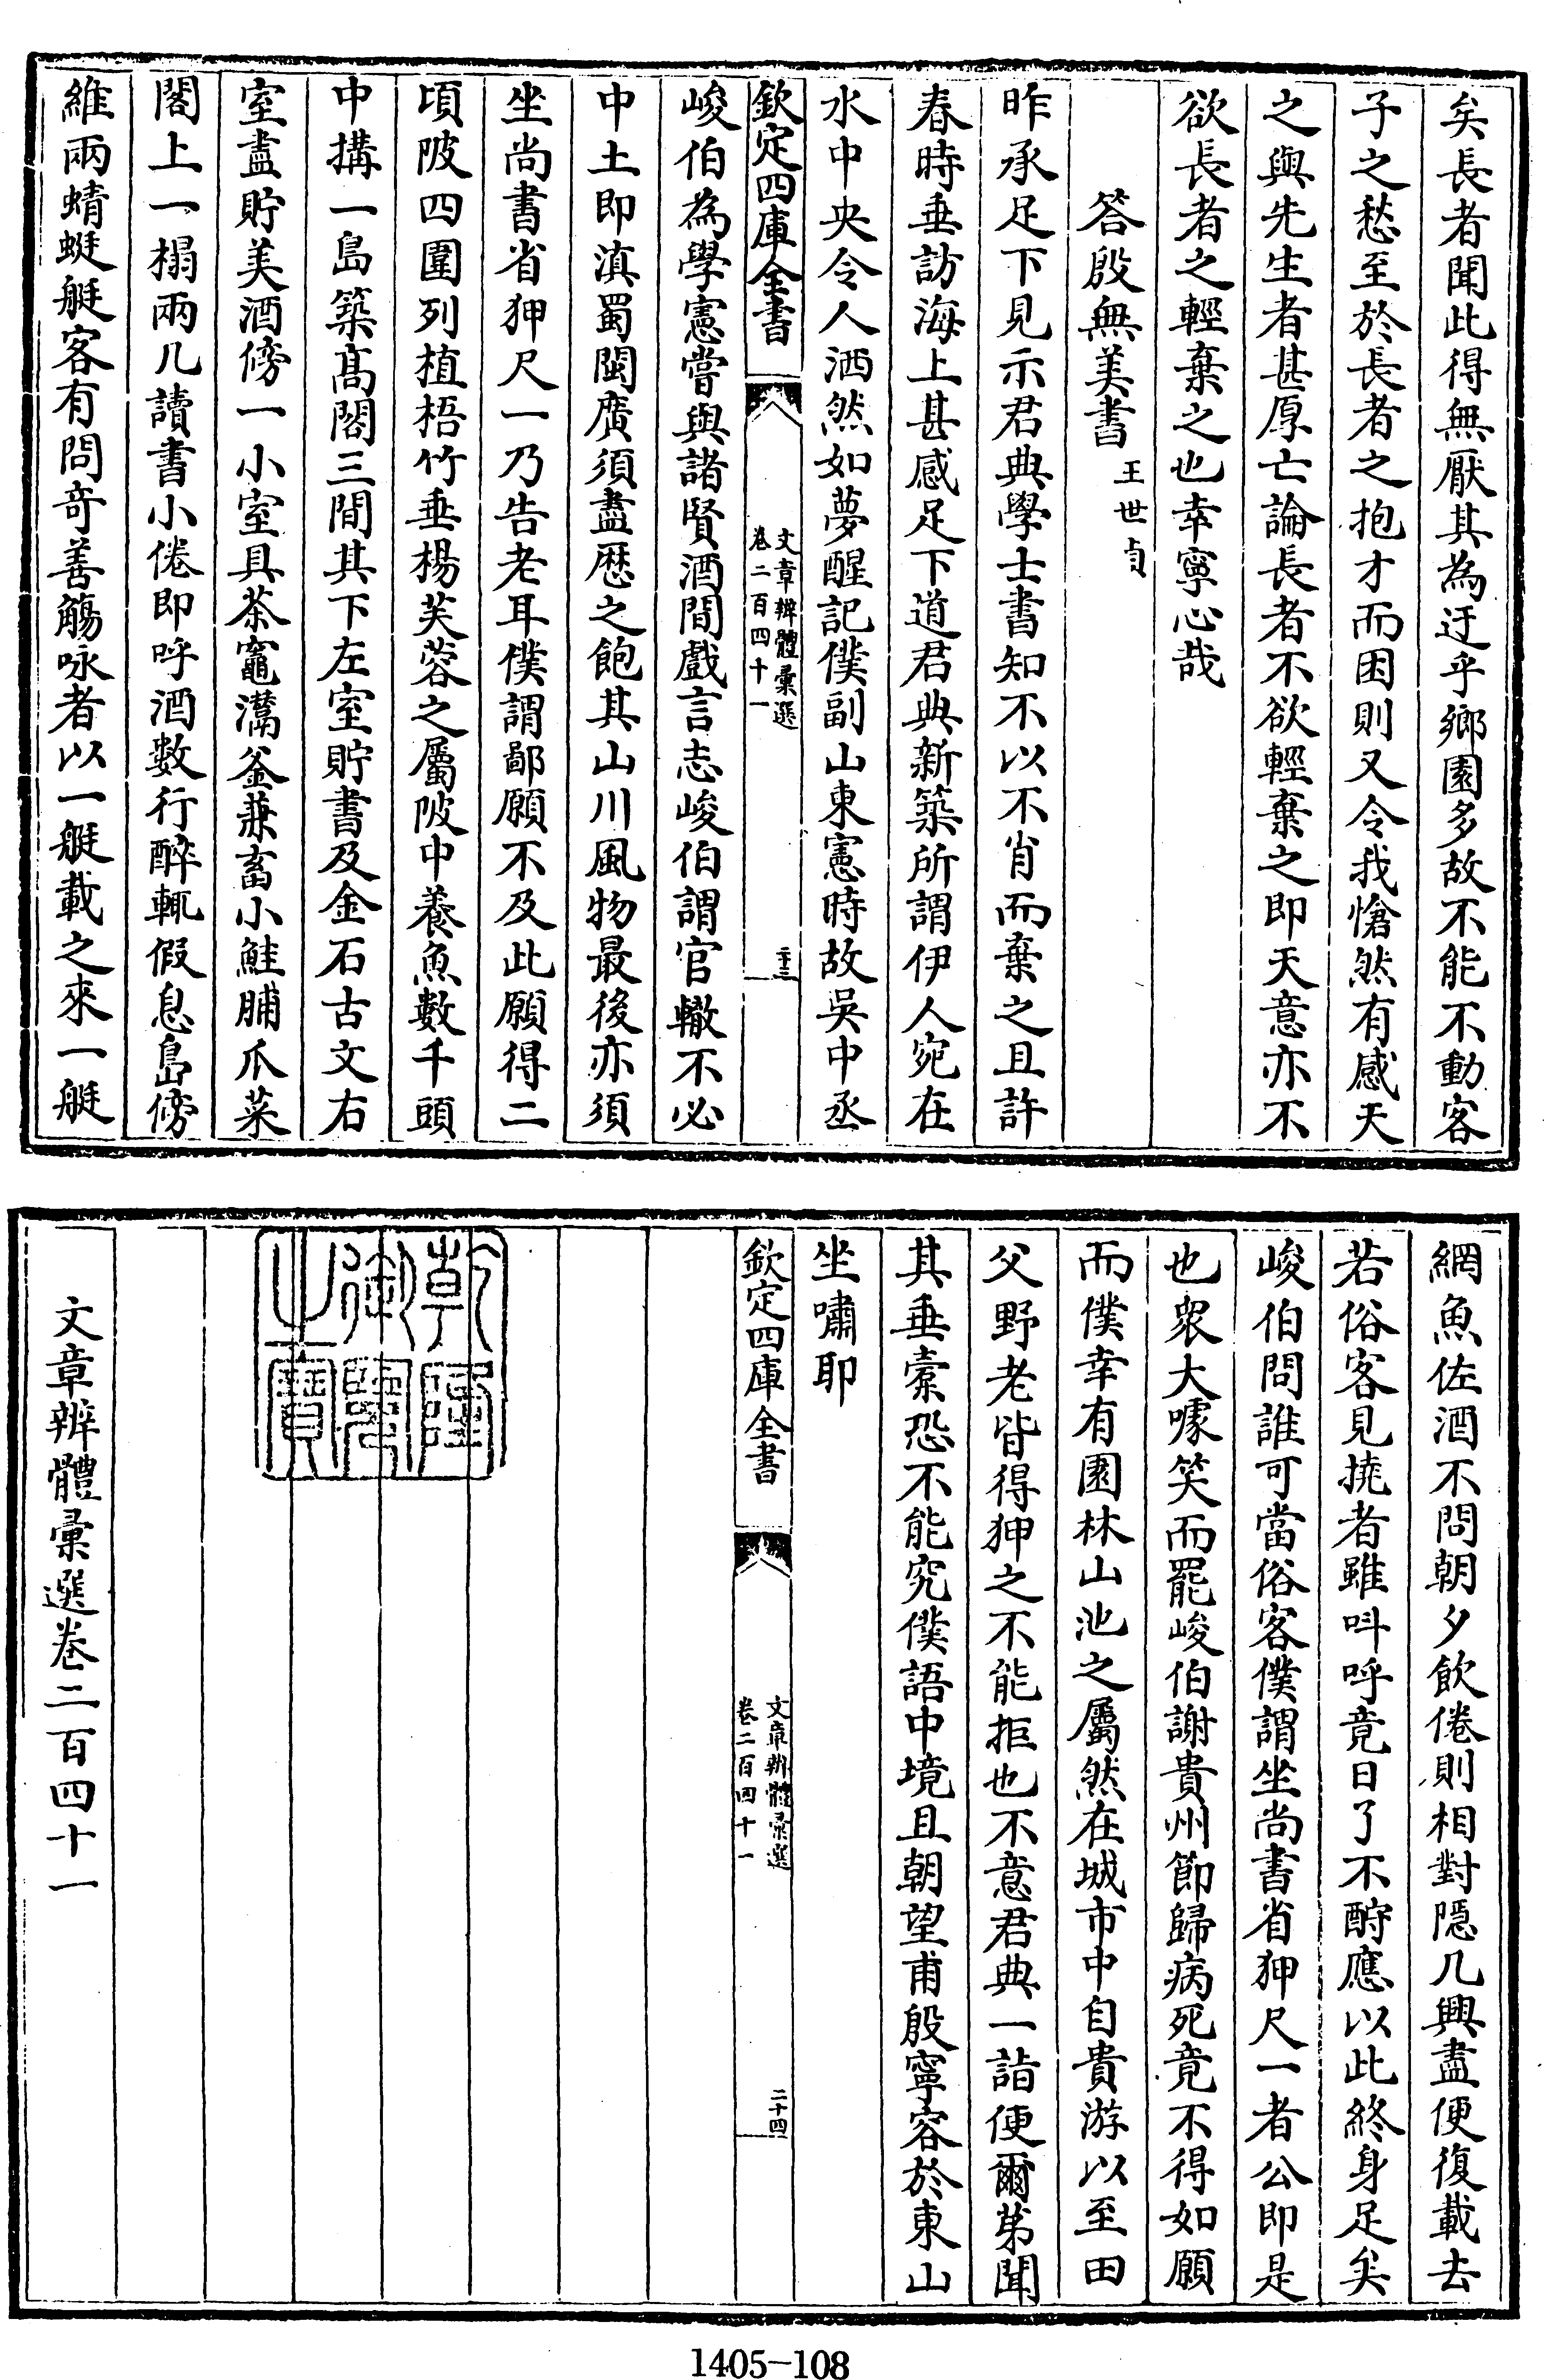 矣長者聞此得無厭其為迂乎鄉園多故不能不動客
子之愁至於長者之抱才而困則又令我愴然有感天
之與先生者甚厚亡論長者不欲輕棄之即天意亦不
欲長者之輕棄之也幸寧心哉
答殷無美書 王世貞
昨承足下見示君典學士書知不以不肖而棄之且許
春時垂訪海上甚感足下道君典新築所謂伊人宛在
水中央令人洒然如夢醒記僕副山東憲時故吳中丞
欽定四庫全書
文章辨體彙選
卷二百四十一
二十三
峻伯為學憲嘗與諸賢酒間戲言志峻伯謂官轍不必
中土即滇蜀閩廣須盡歷之飽其山川風物最後亦須
坐尚書省狎尺一乃告老耳僕謂鄙願不及此願得二
頃陂四圍列植梧竹垂楊芙蓉之屬陂中養魚數千頭
中搆一島築高閣三間其下左室貯書及金石古文右
室盡貯美酒傍一小室具茶竈灊釜兼畜小鮭脯爪菜
閣上一榻兩几讀書小倦即呼酒數行醉輒假息島傍
維兩蜻蜓艇客有問奇善觴咏者以一艇載之來一艇
網魚佐酒不問朝夕飲倦則相對隱几興盡便復載去
若俗客見撓者雖呌呼竟日了不酧應以此終身足矣
峻伯問誰可當俗客僕謂坐尚書省狎尺一者公即是
也衆大噱笑而罷峻伯謝貴州節歸病死竟不得如願
而僕幸有園林山池之屬然在城市中自貴游以至田
父野老皆得狎之不能拒也不意君典一詣便爾第聞
其垂橐恐不能究僕語中境且朝望甫殷寧容於東山
坐嘯耶
欽定四庫全書
文章辨體彙選
卷二百四十一
二十四
乾隆
御覽
之寶
文章辨體彙選卷二百四十一
1405-108